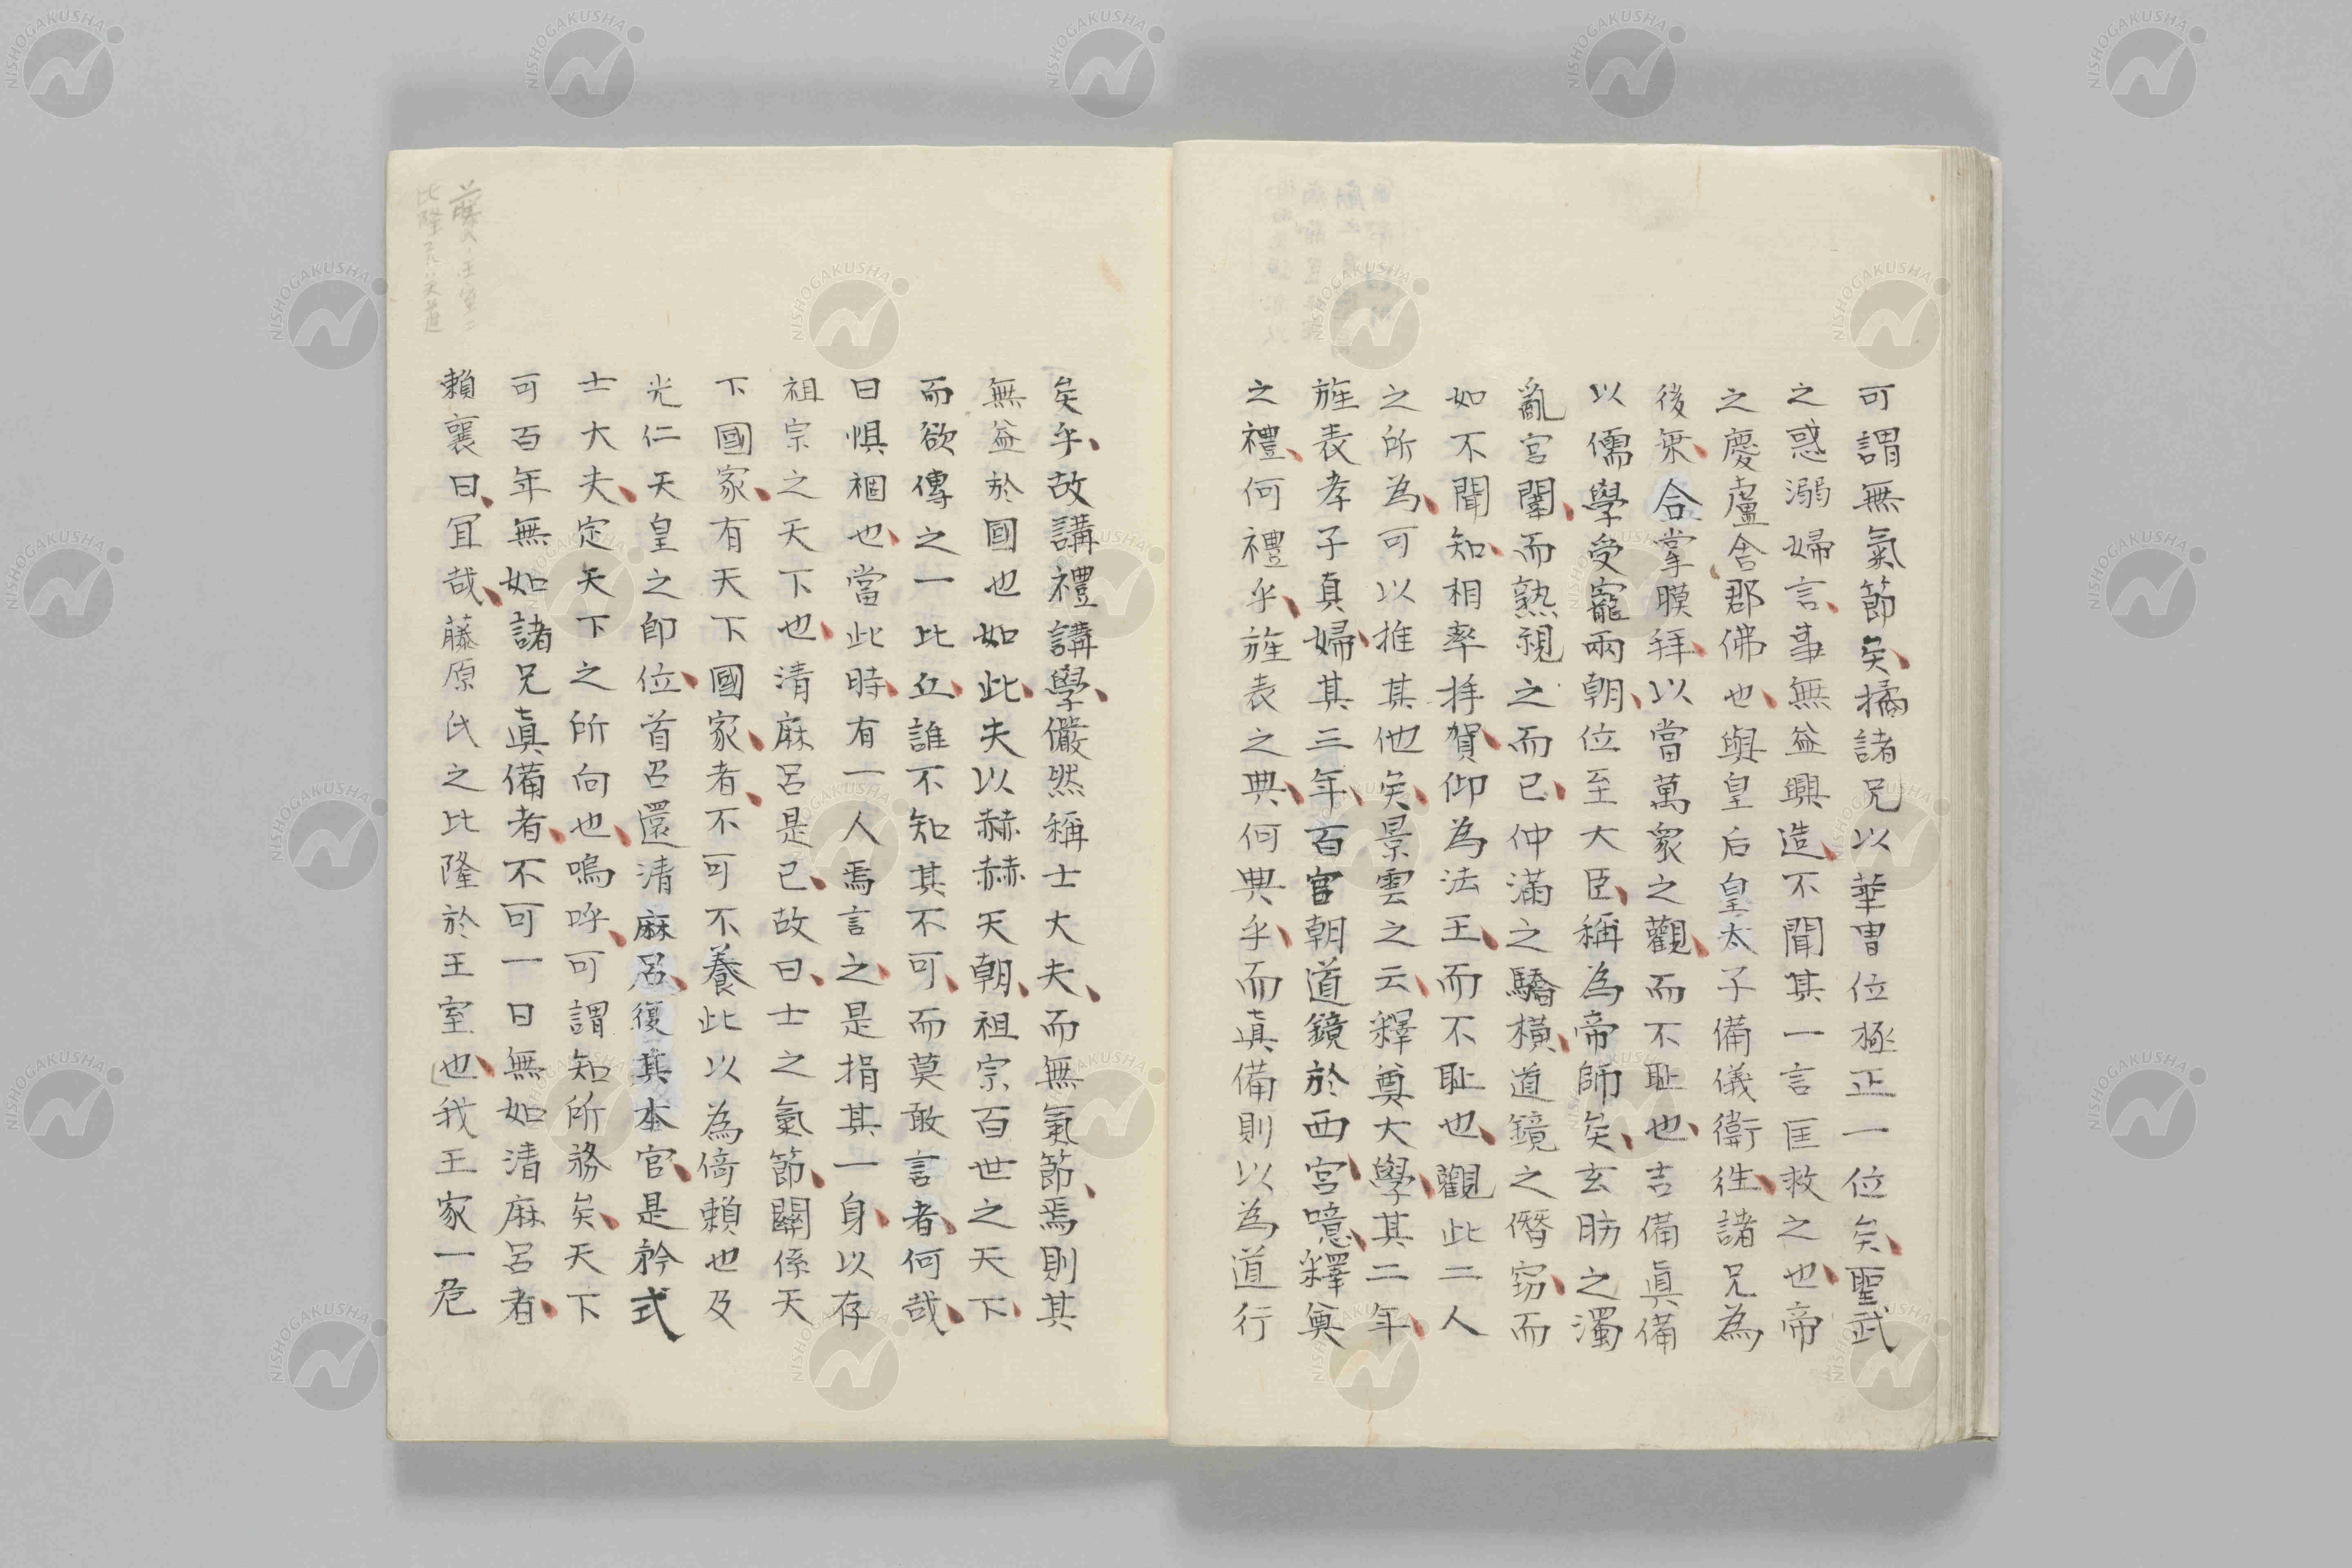 可謂無氣節矣、橘諸兄以華冑位極正一位矣、聖武
之惑溺婦言、事無益興造、不聞其一言匡救之也、帝
之慶盧舎郡佛也、與皇后皇太子備儀衛徃、諸兄為
後乗、合掌膜拜、以當萬衆之觀、而不耻也、吉備眞備
以儒學受寵兩朝、位至大臣、稱為帝師矣、玄肪之濁
亂宮闈、而熟視之而已、仲滿之驕橫、道鏡之僭窃、而
如不聞知、相率拝賀、仰為法王、而不耻也、觀此二人
之所為、可以推其他矣、景雲之云、釋奠大學、其二年、
旌表孝子真婦、其三年、百官朝道鏡於西宮、噫、釋奠
之禮、何禮乎、旌表之典、何典乎、而真備則以為道行
矣乎、故講禮講學、儼然稱士大夫、而無氣節、焉則其
無益於國也如此、夫以赫赫天朝、祖宗百世之天下、
而欲傳之一比丘、誰不知其不可、而莫敢言者、何哉、
曰惧禍也、當此時、有一人焉言之、是捐其一身、以存
祖宗之天下也、清麻呂是已、故曰、士之氣節、關係天
下國家、有天下國家、者、不可不養此以為倚頼也及
光仁天皇之即位、首召還清麻呂、復其本官、是矜式
士大夫、定天下之所向也、嗚呼、可謂知所務矣、天下
可百年無如諸兄眞備者、不可一日無如清麻呂者、
頼襄曰、冝哉、藤原氏之比隆於王室也、我王家一危
NISHOGAKUSHA